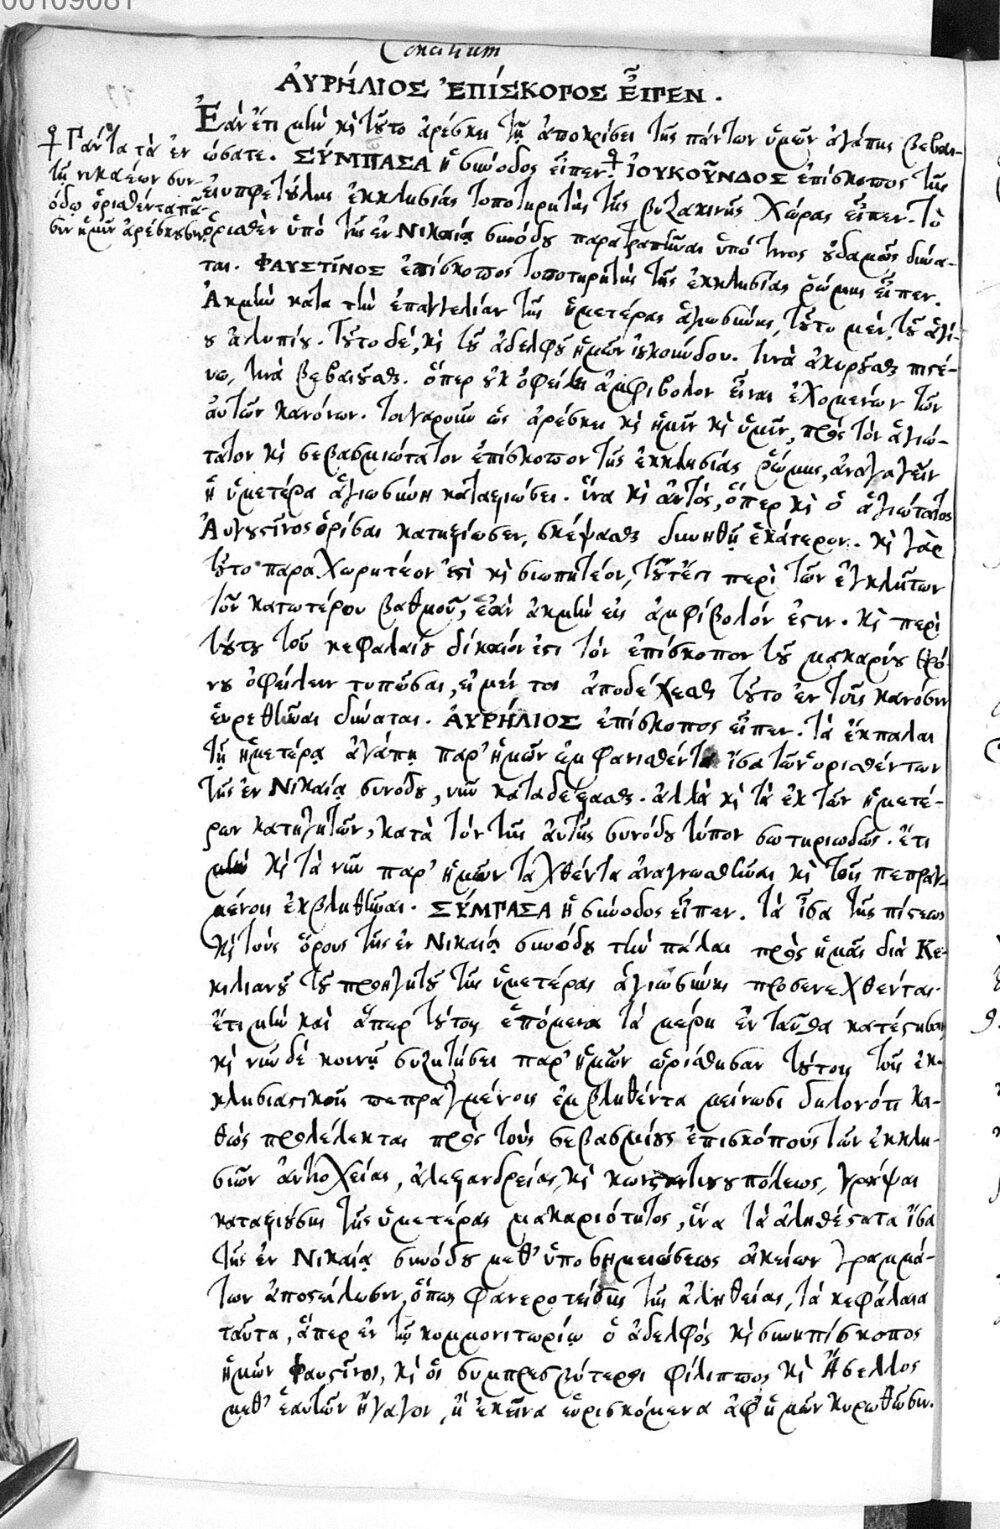 00109081
Concilium
ΑΥΡΉΛΙΟΣ ἘΠΊΣΚΟΠΟΣ ΕἾΠΕΝ.
Ἐὰν ἔτι μὴν κὶ τοῦτο ἀρέσκει τῇ ἀποκρίσει τῆς πάντων ὑμῶν ἀγάπης βεβαι-
ώσατε. ΣΎΜΠΑΣΑ ἡ σύνοδος εἶπεν. ἸΟΥΚΟΎΝΔΟΣ ἐπίσκοπος τῆς
Πάντα τὰ ἐν
τῇ νικαέων συν-
όδῳ ὁρισθέντα πᾶ-
σιν ἡμῖν ἀρέσκουσιν
ἐκκλησίας τοποτηρητὴς τῆς βυζακινῆς χώρας εἶπεν. τὸ
ὁρισθὲν ὑπὸ τῆς ἐν Νικαίᾳ συνόδου παρατραπῆναι ὑπό τινος οὐδαμῶς δύνα-
ται. ΦΑΥΣΤΙΝΟΣ ἐπίσκοπος τοποτηρητὴς τῆς ἐκκλησίας ῥώμης εἶπεν.
Ἀκμὴν κατὰ τὴν ἐπαγγελίαν τῆς ὑμετέρας ἁγιωσύνης, τοῦτο μὲν, τοῦ ἁγί-
ου ἀλυπίου. τοῦτο δέ, κὶ τοῦ ἀδελφοῦ ἡμῶν ἰουκούνδου. τινὰ ἀκυροῦσθαι πιστεύ-
ω, τινὰ βεβαιοῦσθαι. ὅπερ οὐκ ὀφείλει ἀμφίβολον εἶναι ἐχομένων τῶν
αὐτῶν κανόνων. τοιγαροῦν ὡς ἀρέσκει κὶ ἡμῖν κὶ ὑμῖν, πρὸς τὸν ἁγιώ-
τατον κὶ σεβασμιώτατον ἐπίσκοπον τῆς ἐκκλησίας ῥώμης, ἀναγαγεῖν
ἡ ὑμετέρα ἁγιωσύνη καταξιώσει. ἵνα κὶ αὐτός, ὅπερ κὶ ὁ ἁγιώτατος
Ἀυγουστῖνος ὁρίσαι κατηξίωσεν, σκέψασθαι δυνηθῇ ἑκάτερον. κὶ γὰρ
τοῦτο παραχωρητέον ἐστὶ κὶ σιωπητέον, τοῦτέστι περὶ τῶν ἐγκλήτων
τοῦ κατωτέρου βαθμοῦ, ἐὰν ἀκμὴν εἰς ἀμφίβολόν ἐστιν. κὶ περὶ
τούτου τοῦ κεφαλαίου δίκαιόν ἐστι τὸν ἐπίσκοπον τοῦ μακαρίου θρό-
νου ὀφείλειν τυπῶσαι, εἰ μέν τοι ἀποδέχεσθαι τοῦτο ἐν τοῖς κανόσιν
εὑρεθῆναι δύναται. ΑΥΡΉΛΙΟΣ ἐπίσκοπος εἶπεν. τὰ ἔκπαλαι
τῇ ἡμετέρᾳ ἀγάπῃ παρ' ἡμῶν ἐμφανισθέντα ἴσα τῶν ὁρισθέντων
τῆς ἐν Νικαίᾳ συνόδου, νῦν καταδέξασθαι. ἀλλὰ κὶ τὰ ἐκ τῶν ἡμετέ-
ρων κατηγητῶν, κατὰ τὸν τῆς αὐτῆς συνόδου τύπον σωτηριωδῶς. ἔτι
μὴν κὶ τὰ νῦν παρ' ἡμῶν ταχθέντα ἀναγνωσθῆναι κὶ τοῖς πεπραγ-
μένοις ἐμβληθῆναι. ΣΎΜΠΑΣΑ ἡ σύνοδος εἶπεν. τὰ ἴσα τῆς πίστεως
κὶ τοὺς ὅρους τῆς ἐν Νικαίᾳ συνόδου τὴν πάλαι πρὸς ἡμᾶς διὰ Κε-
κιλιανοῦ τοῦ προηγητοῦ τῆς ὑμετέρας ἁγιωσύνης προσενεχθέντας.
ἔτι μὴν καὶ ἅπερ τούτοις ἑπόμενα τὰ μέρη ἐνταῦθα κατέστησαν,
κὶ νῦν δὲ κοινῇ συζητήσει παρ' ἡμῶν ὡρίσθησαν τούτοις τοῖς ἐκ-
κλησιαστικοῖς πεπραγμένοις ἐμβληθέντα μείνωσι δηλονότι κα-
θὼς προλέλεκται πρὸς τοὺς σεβασμίους ἐπισκόπους τῶν ἐκκλη-
σιῶν ἀντιοχείας, ἀλεξανδρείας, κὶ κωνσταντινουπόλεως, γράψαι
καταξιούσης τῆς ὑμετέρας μακαριότητος, ἵνα τὰ ἀληθέστατα ἴσα
τῆς ἐν Νικαίᾳ συνόδου μεθ' ὑποσημειώσεως οἰκείων γραμμά-
των ἀποστείλωσιν, ὅπως φανερωθείσης τῆς ἀληθείας, τὰ κεφάλαια
ταῦτα, ἅπερ ἐν τῷ κομμονιτωρίῳ ὁ ἀδελφός κὶ συνεπίσκοπος
ἡμῶν Φαυστῖνος, κὶ οἱ συμπρεσβύτεροι φίλιππος κὶ Ἄσελλος
μεθ' ἑαυτῶν ἤγαγον, ἢ ἐκεῖνα εὑρισκόμενα ἀφ' ἡμῶν κυρωθῶσιν.